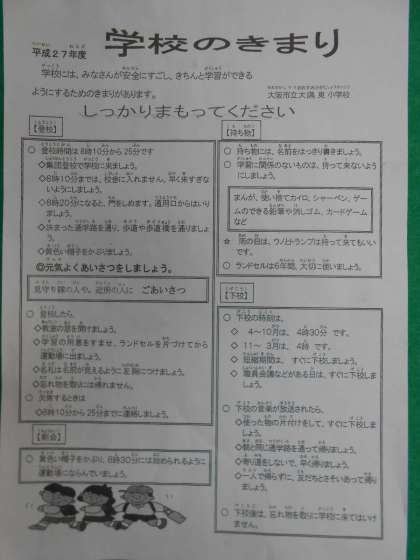 平成27年度
学校のきまり
学校には、みなさんが安全にすごし、きちんと学習ができる
ようにするためのきまりがあります。
大阪市立大隅東小学校
しっかりまもってください
【登校】
○ 登校時間は8時10分から25分です
◇集団登校で学校に来ましょう。
◇8時10分までは、校舎に入れません。早く来すぎな
いようにしましょう。
◇8時20分になると、門をしめます。通用口からはいり
ましょう。
◇決まった通学路を通り、歩道や歩道橋を通りましょ
う。
◇黄色い帽子をかぶりましょう。
◎元気よくあいさつをしましょう。
見守り隊の人や、近所の人に ごあいさつ
○ 登校したら、
◇教室の窓を開けましょう。
◇学習の用意をすませ、ランドセルを片づけてから
運動場に出ましょう。
◇名札は名前が見えるように左胸につけましょう。
◇忘れ物を取りには帰れません。
○ 欠席するときは
◇8時10分から25分までに連絡しましょう。
【朝会】
○ 黄色い帽子をかぶり、8時30分には始められるように
運動場にならんでいましょう。
【持ち物】
○ 持ち物には、名前をはっきり書きましょう。
○ 学習に関係のないものは、持って来ないように
しましょう。
まんが、使い捨てカイロ、シャーペン、ゲー
ムのできる鉛筆や消しゴム、カードゲーム
など
☆ 雨の日は、ウノとトランプは持って来てもいい
です。
○ ランドセルは6年間、大切に使いましょう。
【下校】
○ 下校の時刻は、
◇ 4～10月は、 4時30分 です。
◇ 11～ 3月は、 4時 です。
◇ 短縮期間は、 すぐに下校しましょう。
◇ 職員会議などがある日は、すぐに下校しま
しょう。
○ 下校の音楽が放送されたら、
◇使った物の片付けをして、すぐに下校しま
しょう。
◇朝と同じ通学路を通って帰りましょう。
◇寄り道をしないで、早く帰りましょう。
◇一人で帰らずに、友だちとさそいあって帰り
ましょう。
○ 下校後は、忘れ物を取りに学校に来てはいけ
ません。